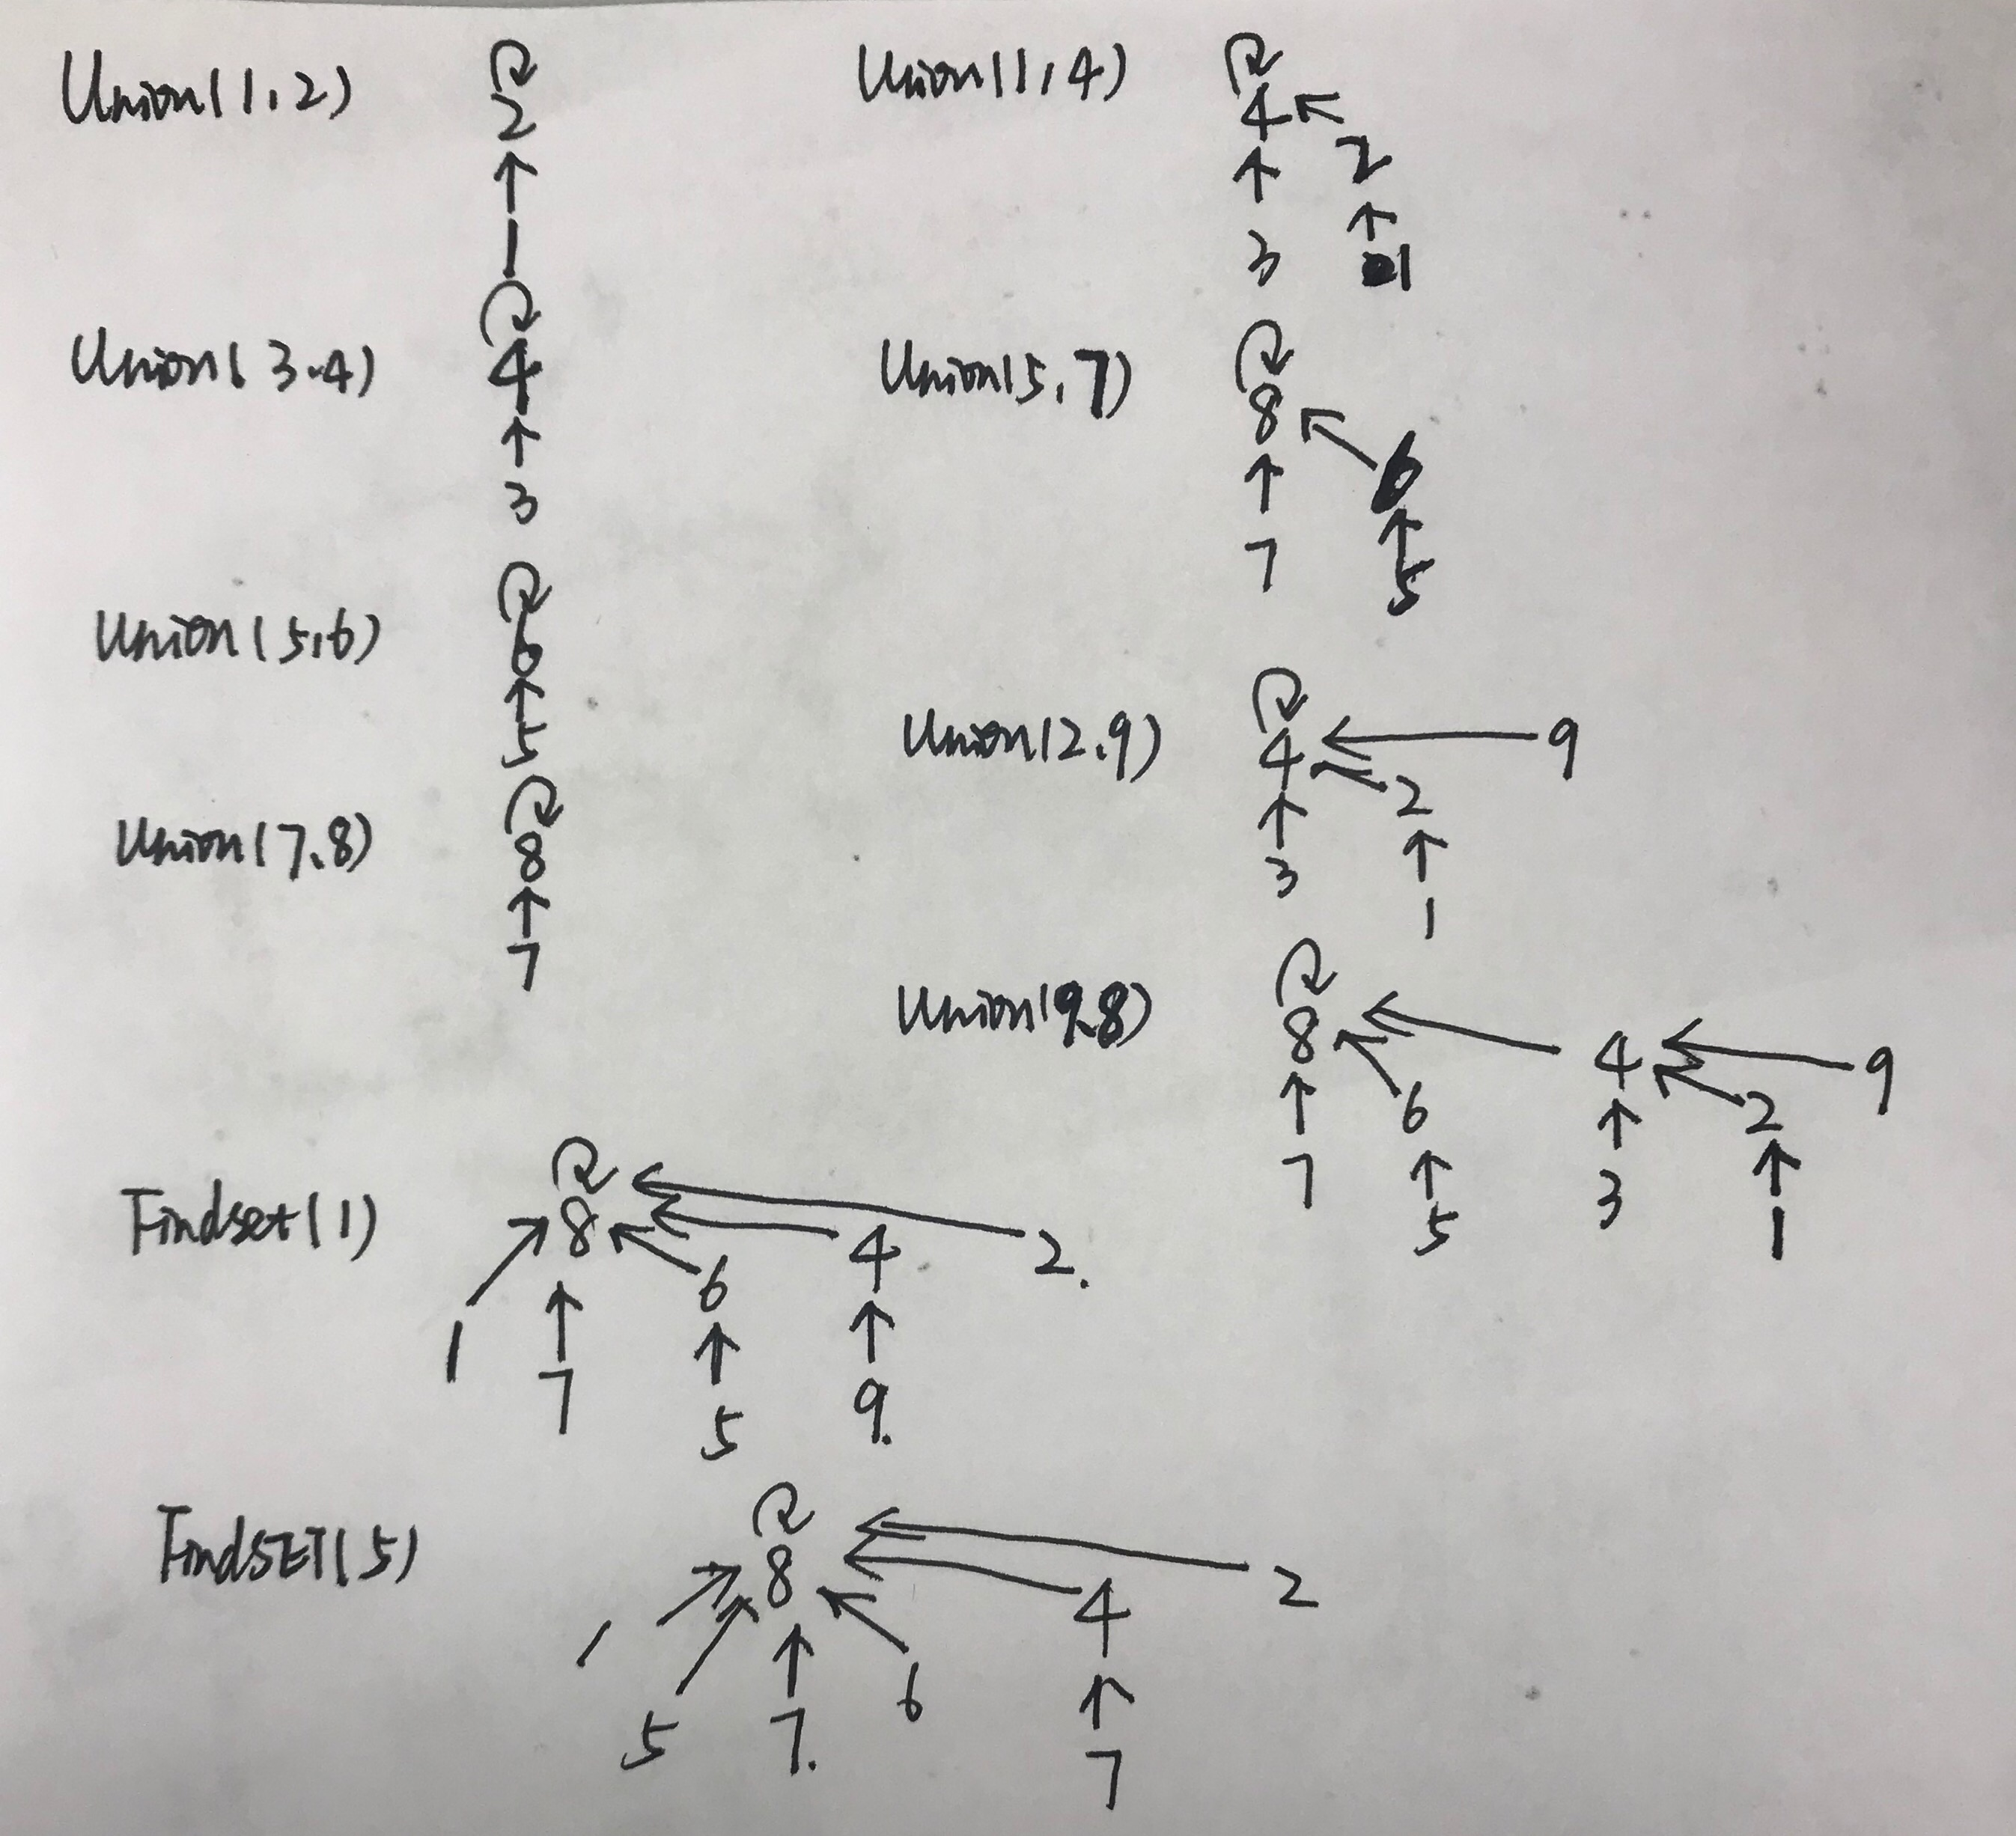 Union(1,2)
2
1
Union(3.4)
4
3
Union(5,6)
6
5
Union(7.8)
8
7
Union(1,4)
4
2
3 1
Union(5,7)
8
6
7 5
Union(2.9)
4 9
2
3
1
Union(9.8)
8 4 9
6 2
7 3
5 1
Findset(1)
8 4 2.
6
1 7
5 9.
FindSET(5)
8 2
1 4
6
5 7.
7